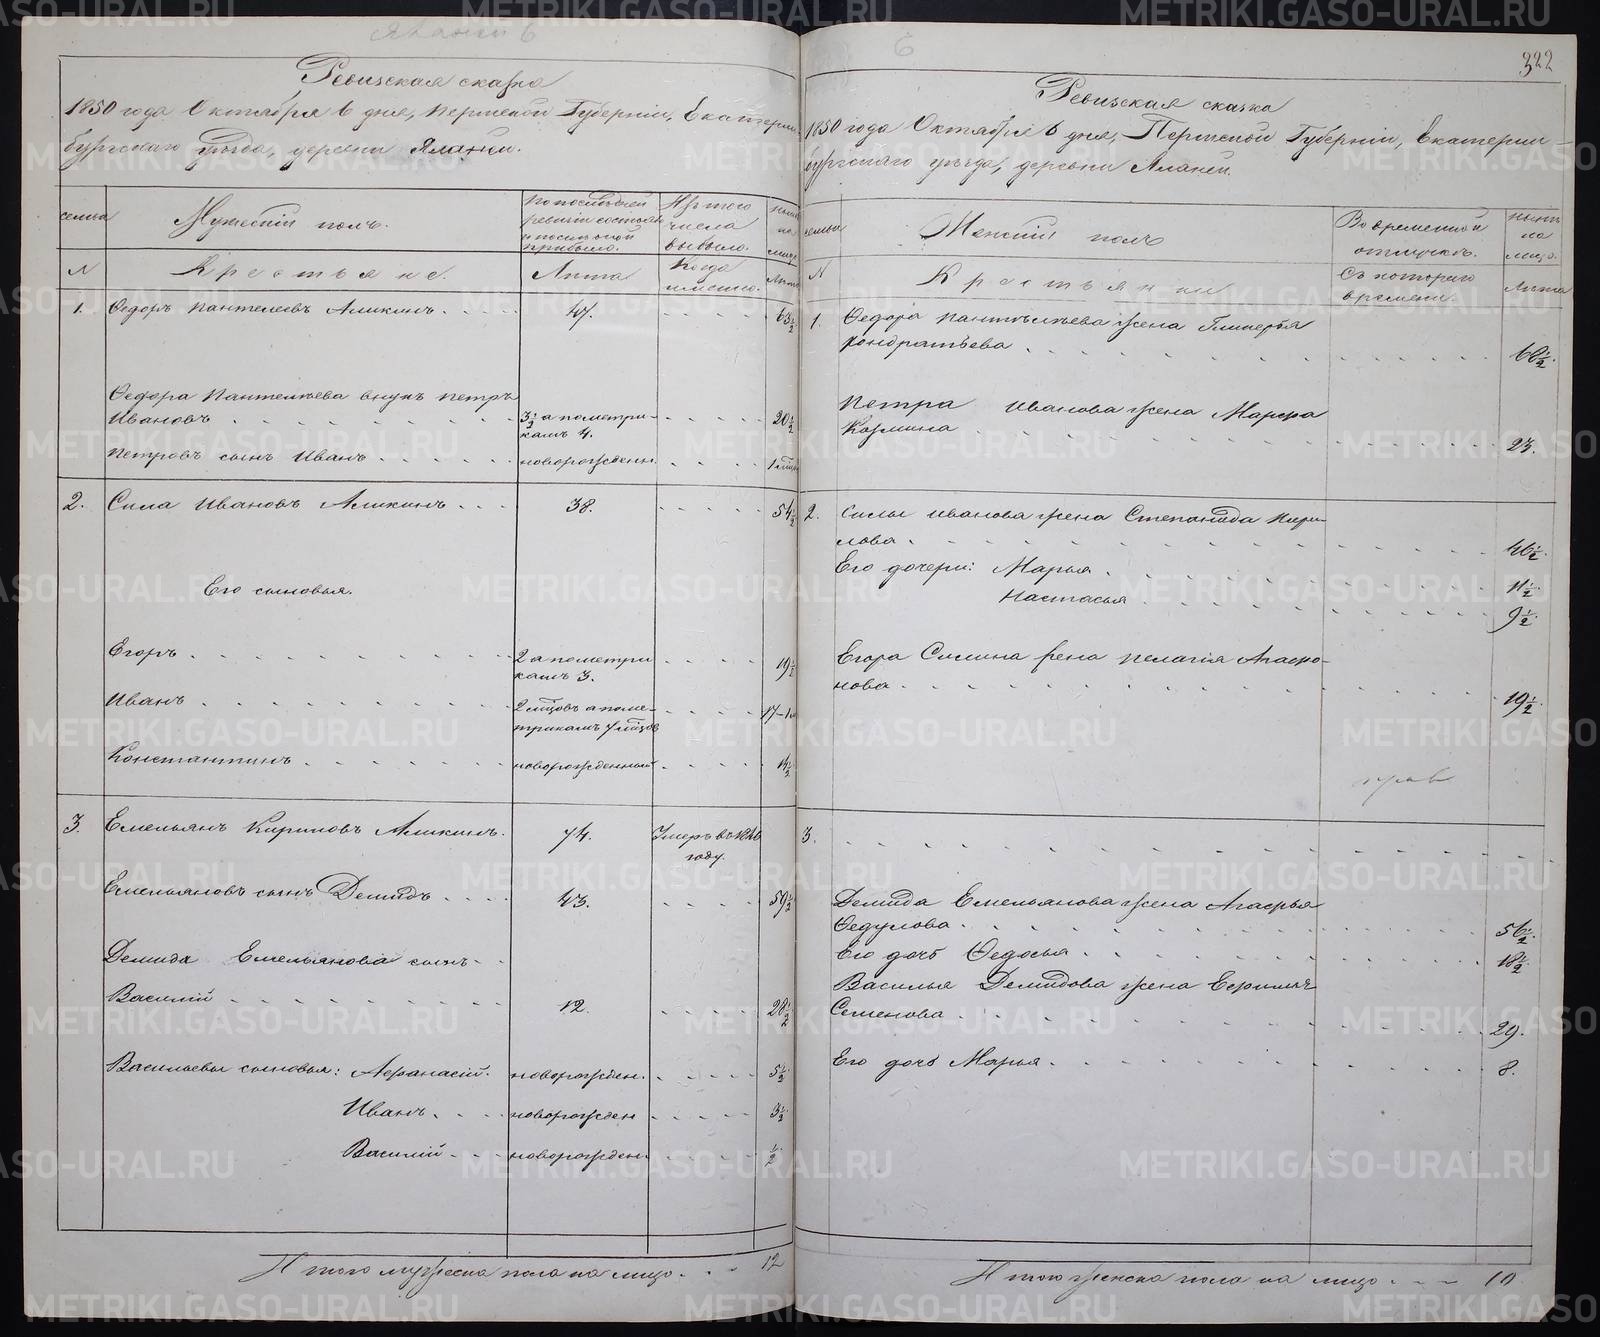 322
Ревизская сказка
1850 года Октября 6 дня, Пермской Губерніи, Екатерин-
бургскаго уѣзда, деревни Яланки.
семьи
Мужескій полъ.
По последней
ревизіи состояло
и после оной
прибыло.
Изъ того
числа
выбыло.
ныне
на
лицо
N
Крестьяне.
Лѣта
Когда
именно.
Лѣта
1. Федоръ Пантелеевъ Аликинъ. 47. 63½
Федора Пантелѣева внукъ Петръ
Ивановъ 3½ а по метри- 20½
камъ 4.
Петровъ сынъ Иванъ новорожденн.
2. Сила Ивановъ Аликинъ 38. 54½
Его сыновья.
Егоръ 2 а по метри 19½
камъ 3.
Иванъ 2 мцовъ а по ме-
трикамъ 7 мцов
Константинъ новорожденный
3. Емельянъ Кириловъ Аликинъ. 74. Умеръ въ
году.
Емельяновъ сынъ Демидъ 43. 59½
Демида Емельянова сынъ
Василій 12. 28½
Васильевы сыновья: Афанасій. новорожден. 5½
Иванъ. новорожден 3½
Василій новорожден. ½
Итого мужеска пола на лицо 12
Ревизская сказка
1850 года Октября 6 дня, Пермской Губерніи, Екатерин-
бургскаго уѣзда, деревни Яланки.
семьи
Женскій полъ
Во временной
отлучкѣ.
ныне
на
лицо.
N
Крестьянки
Съ котораго
времени.
Лѣта
1. Федора Пантелѣева жена Гликерья
Кондратьева 68½.
Петра Иванова жена Марфа
Козмина 23.
2. Силы Иванова жена Степанида Кири-
лова. 46½.
Его дочери: Марья. 11½
Настасья 9½.
Егора Силина жена Пелагія Агафо-
нова. 19½.
3.
Демида Емельянова жена Агафья
Федулова. 56½.
Его дочь Федосья 18½
Василья Демидова жена
Семенова 29.
Его дочь Марья. 8.
Итого женска пола на лицо 10
METRIKI.GASO-URAL.RU